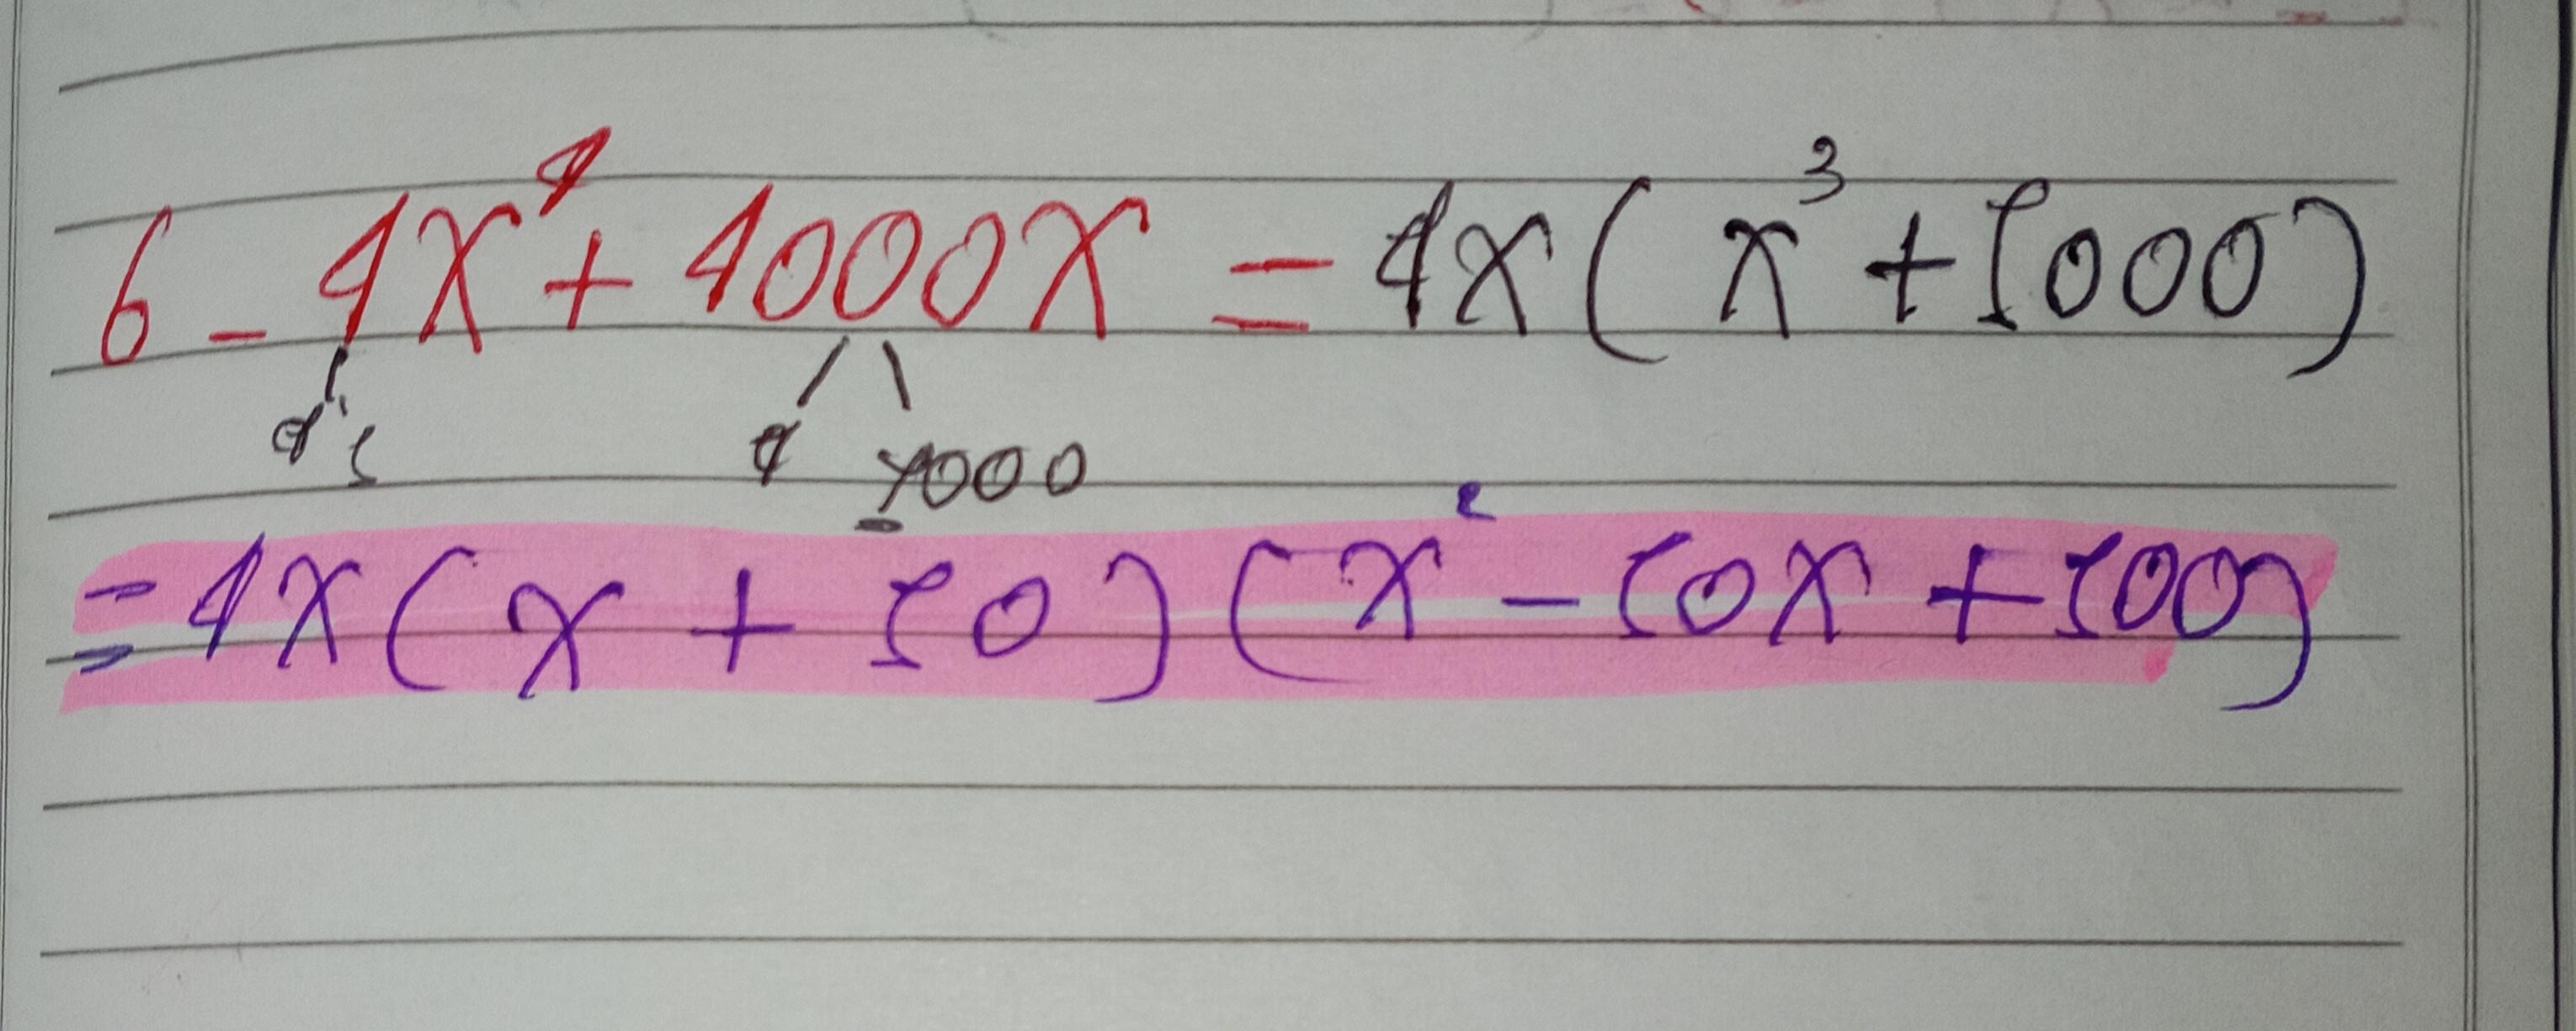 6 - 4x⁴ + 4000x = 4x ( x³ + 1000 )
4 1 4 1000
= 4x ( x + 10 ) ( x² - 10x + 100 )